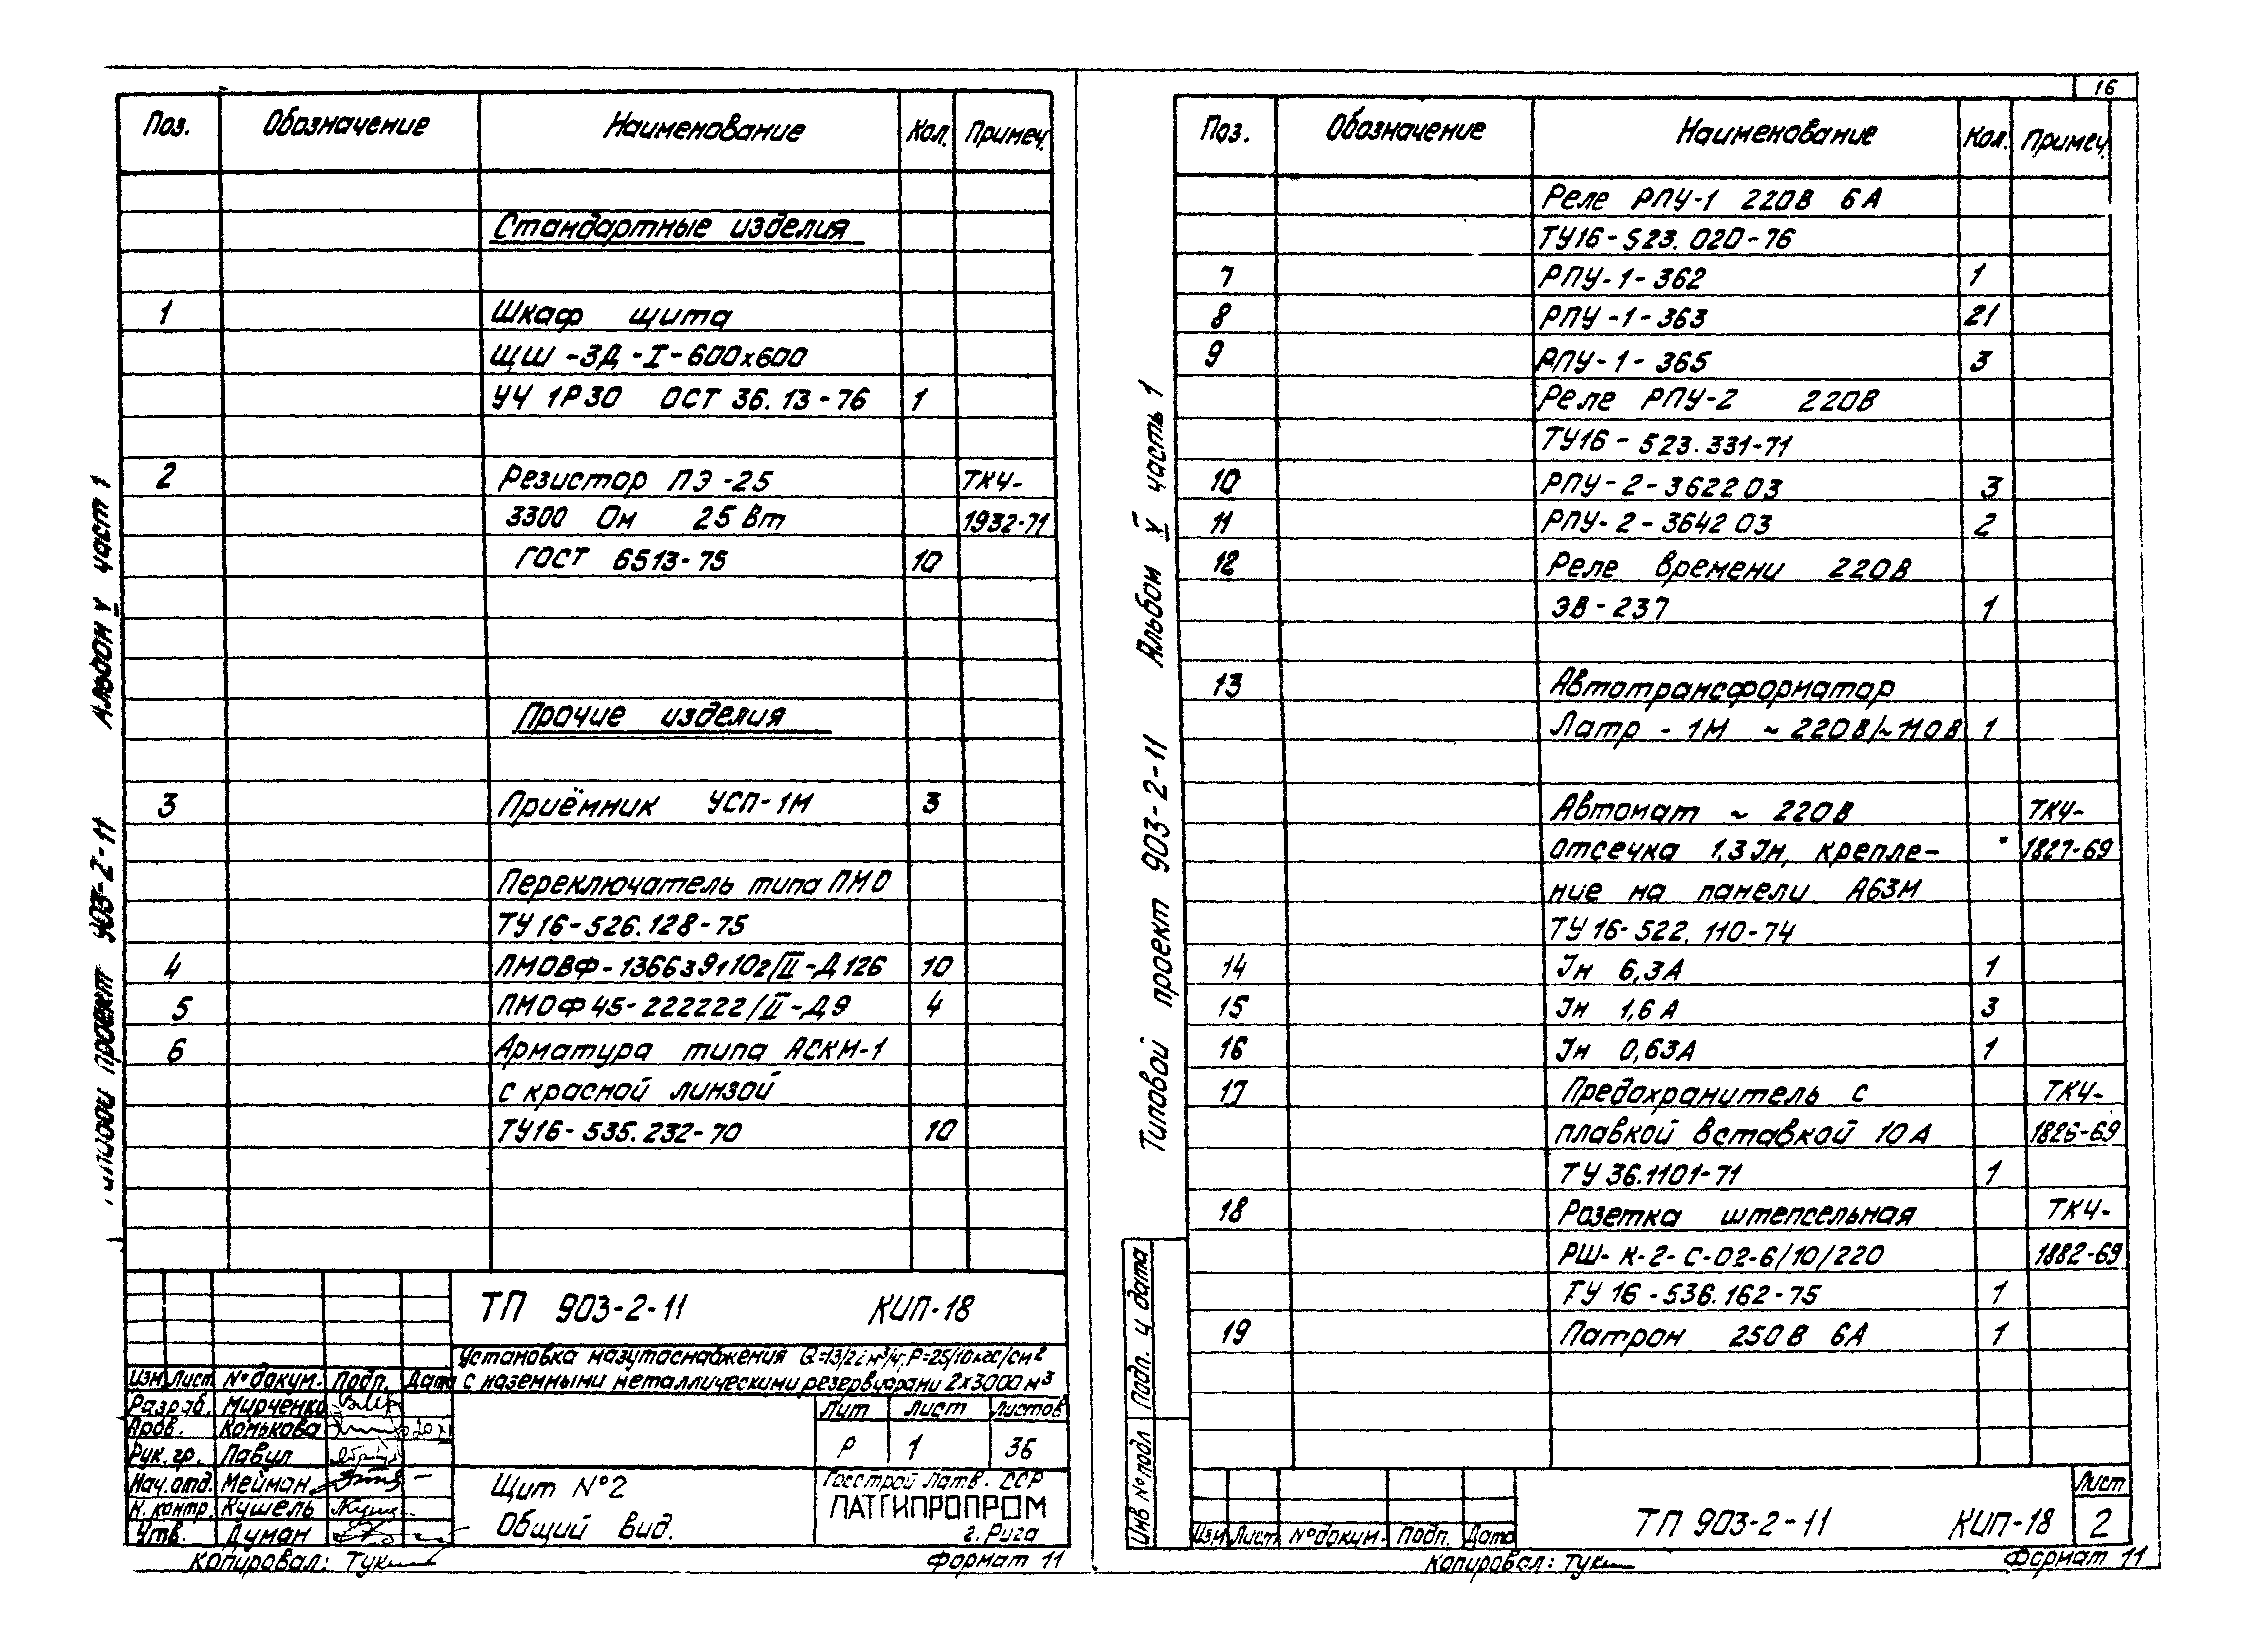 Поз. Обозначение Наименование Кол. Примеч.
Стандартные изделия
1 Шкаф щита
ЩШ-ЗД-I-600х600
УЧ 1Р30 ОСТ 36.13-76 1
2 Резистор ПЭ-25 ТКЧ-
3300 Ом 25 Вт 1932-71
ГОСТ 6513-75 10
Прочие изделия
3 Приёмник УСП-1М 3
Переключатель типа ПМО
ТУ 16-526.128-75
4 ПМОВФ-1366391102/III-Д126 10
5 ПМОФ45-222222/II-Д9 4
6 Арматура типа АСКМ-1
с красной линзой
ТУ16-535.232-70 10
Альбом V част 1
Типовой проект 903-2-11
ТП 903-2-11 КИП-18
Установка мазутоснабжения Q=13/2 м³/ч; P=25/10 кгс/см²
с наземными металлическими резервуарами 2х3000 м³
Изм Лист № докум. Подп. Дата
Разраб. Мирченко
Пров. Конькова
Рук. гр. Павул
Нач. отд. Мейман
Н. контр. Кушель
Утв. Думан
Лит Лист Листов
Р 1 36
Щит №2
Общий вид.
Госстрой Латв. ССР
ЛАТГИПРОПРОМ
г. Рига
Копировал: Формат 11
16
Поз. Обозначение Наименование Кол. Примеч.
Реле РПУ-1 220В 6А
ТУ16-523.020-76
7 РПУ-1-362 1
8 РПУ-1-363 21
9 РПУ-1-365 3
Реле РПУ-2 220В
ТУ16-523.331-71
10 РПУ-2-362203 3
11 РПУ-2-364203 2
12 Реле времени 220В
ЭВ-237 1
13 Автотрансформатор
Латр-1М ~220В/~110В 1
Автомат ~ 220В ТКЧ-
отсечка 1,3Iн, крепле- 1827-69
ние на панели А63М
ТУ 16-522.110-74
14 Iн 6,3А 1
15 Iн 1,6А 3
16 Iн 0,63А 1
17 Предохранитель с ТКЧ-
плавкой вставкой 10А 1826-69
ТУ 36.1101-71 1
18 Розетка штепсельная ТКЧ-
РШ-К-2-С-02-6/10/220 1882-69
ТУ 16-536.162-75 1
19 Патрон 250В 6А 1
Типовой проект 903-2-11 Альбом V часть 1
Инв № подл Подп. и дата
Изм Лист № докум. Подп. Дата
ТП 903-2-11 КИП-18
Лист
2
Копировал: Формат 11